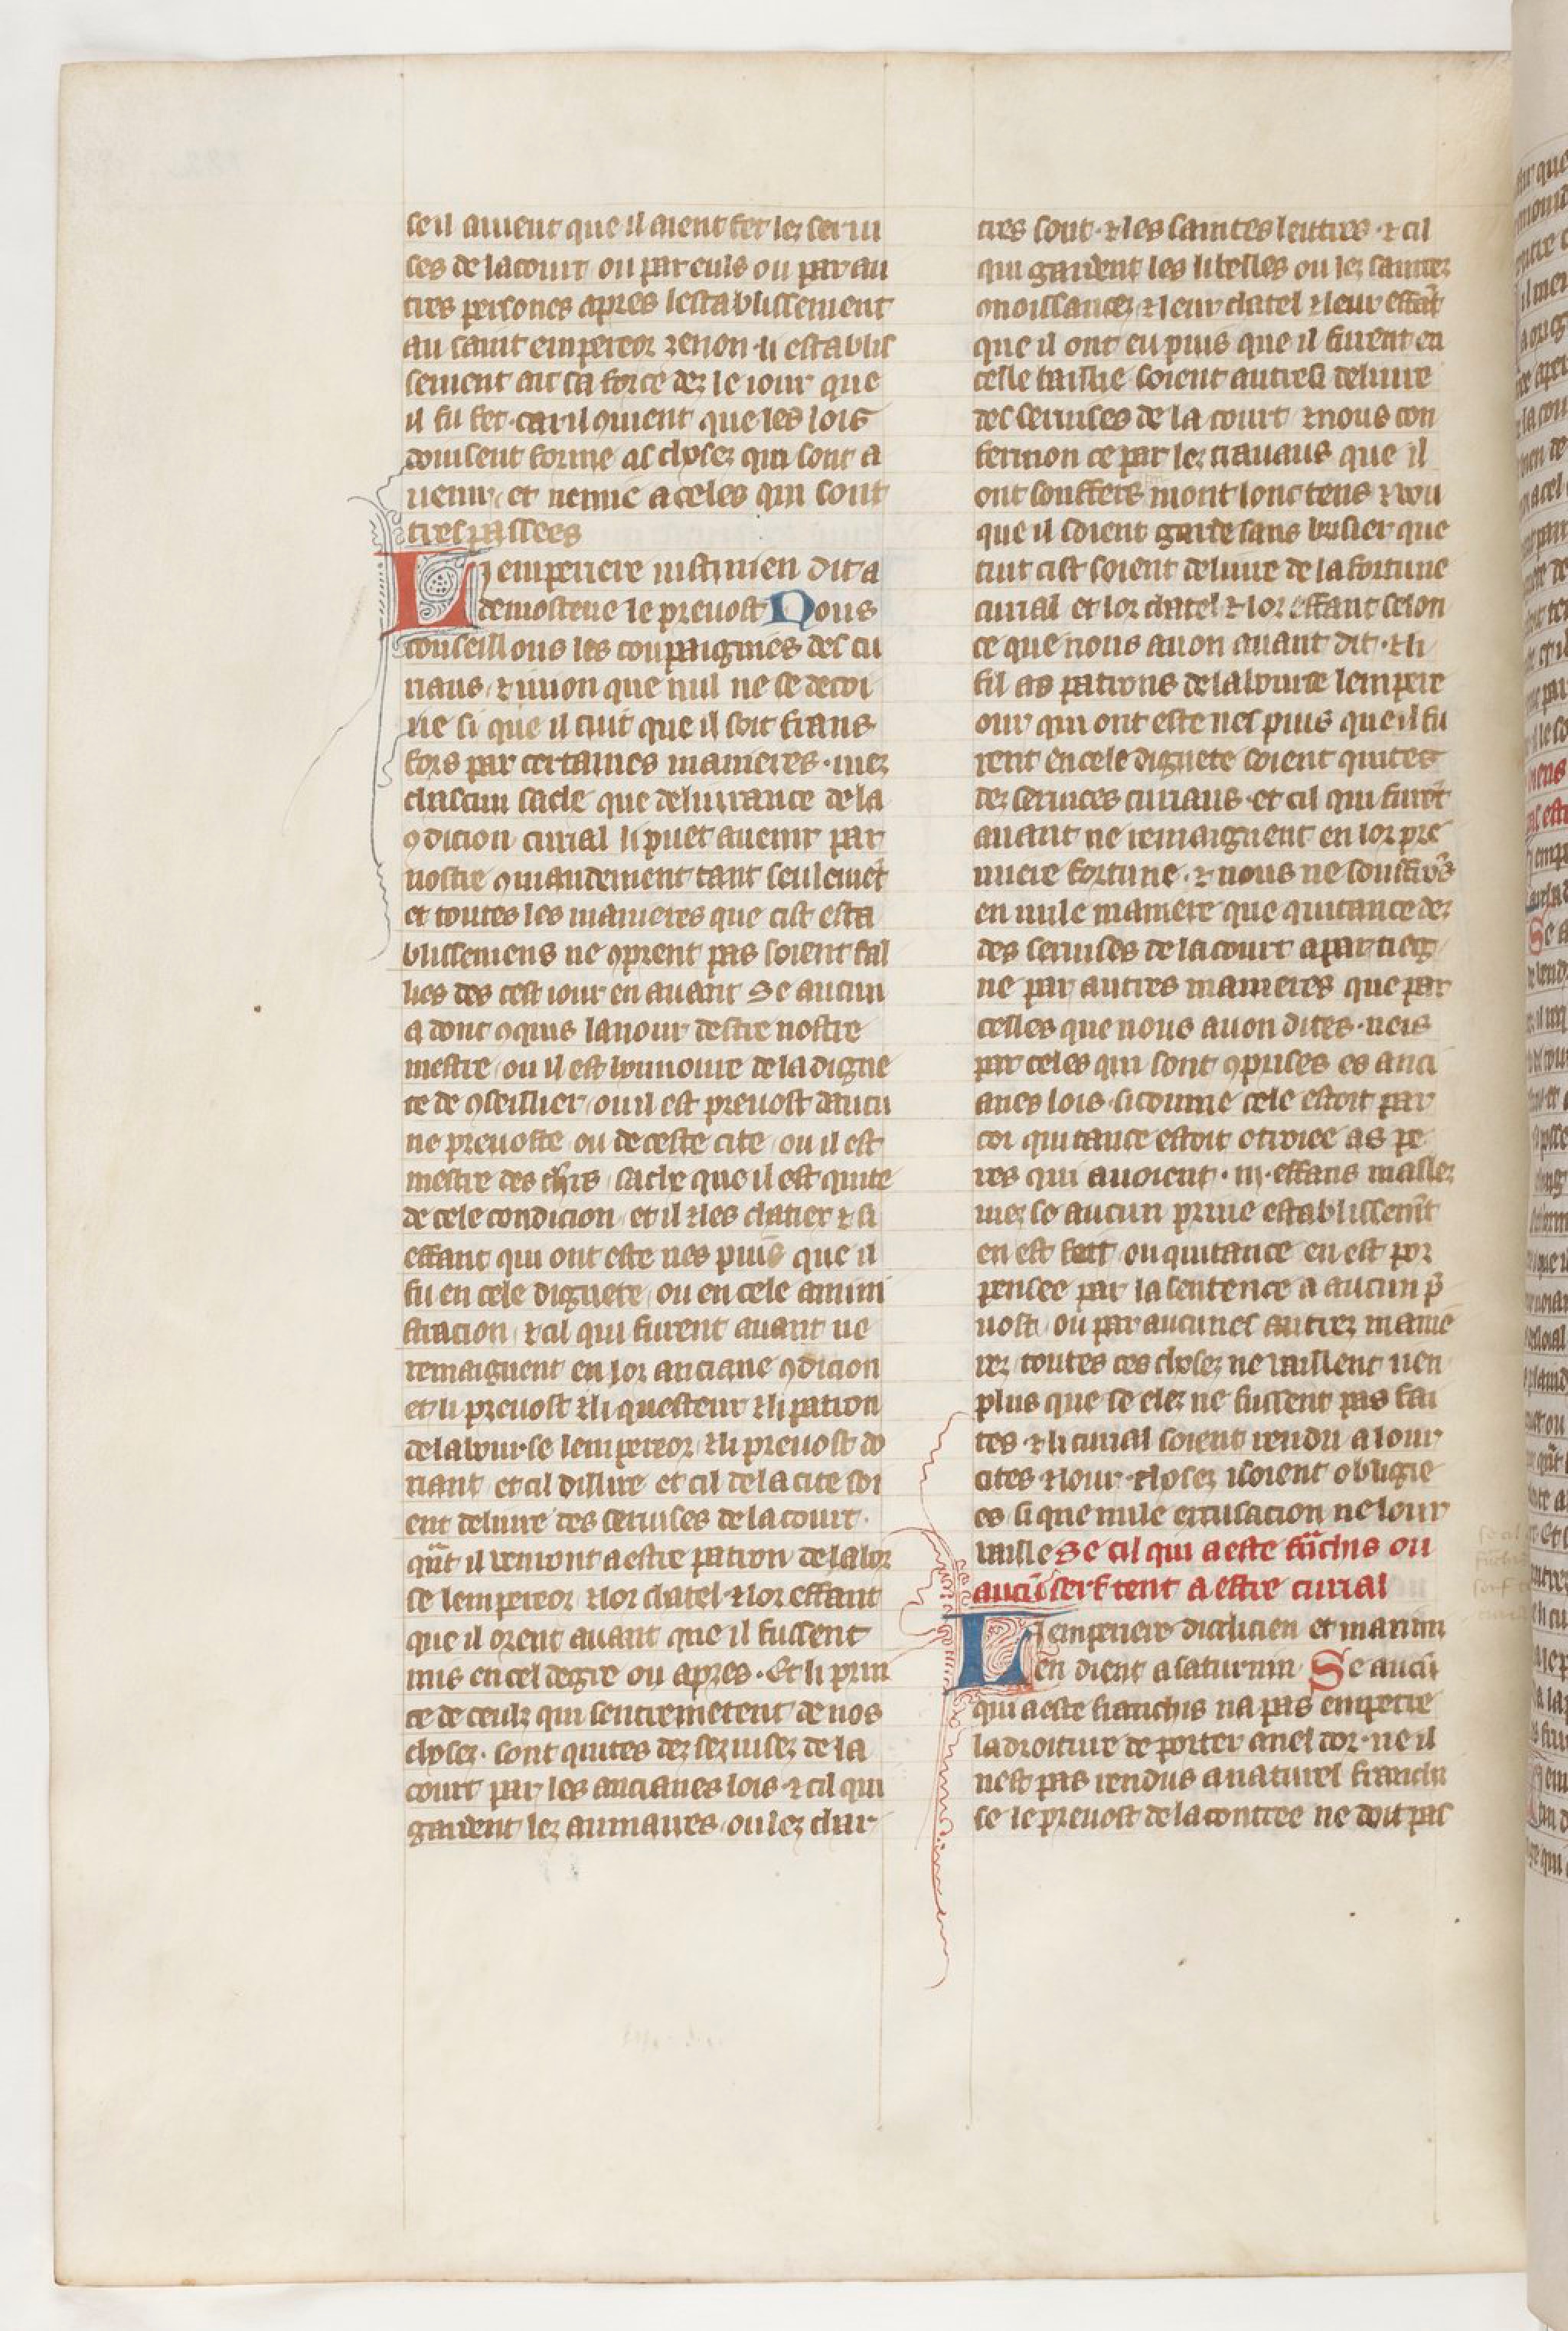 se il auient que il aient fet lez serui
ces de la court ou par euls ou par au
tres persones apres lestablissement
au saint empereor zenon li establis
sement ait sa force dez le iour que
il fu fet. car il ꝯuient que les lois
doinsent forme as choses qui sont a
uenir et nemie a celes qui sont
trespassees
Li emperiere iustinien dit a
demostene le preuost Nous
conseillons les conpaignies des cu
riaus ⁊ uuon que nul ne se decoi
ue si que il cuit que il soit frans
fors par certaines manieres. mez
chascun sache que deliurance de la
ꝯdicion curial li puet auenir par
nostre ꝯmandement tant seulemēt
et toutes les manieres que cist esta
blissemens ne ꝯprent pas soient fal
lies des cest iour en auant Se aucun
a donc ꝯquis lanour destre nostre
mestre ou il est honnoure de la digne
te de ꝯseillier ou il est preuost daucu
ne preuoste ou de ceste cite ou il est
mestre des chrs sache que il est quite
de cele condicion et il ⁊ les chatier ⁊ si
effant qui ont este nes puis que il
fu en cele dignete ou en cele amini
stracion ⁊ cil qui furent auant ne
remaignent en lor anciane ꝯdicion
et li preuost ⁊ li questeur ⁊ li patron
de la bourse lempereor ⁊ li preuost do
riant et cil dillire et cil de la cite soi
ent deliure des seruises de la court.
qūt il uenront a estre patron de la bor
se lempereor ⁊ lor chatel ⁊ lor effant
que il orent auant que il fussent
mis en cel degre ou apres. Et li prin
ce de ceulz qui sentremetent de nos
choses. sont quites dez seruises de la
court par les ancianes lois ⁊ cil qui
gardent lez aumaires ou lez char
tres sont ⁊ les saintes lettres ⁊ cil
qui gardent les libelles ou lez saintez
ꝯnoissancez ⁊ leur chatel ⁊ leur effāt
que il ont eu puis que il furent en
celle baillie soient autresi deliure
des seruises de la court ⁊ nous con
fermon ce par lez trauaus que il
ont souffers mont lonc tens ⁊ uou
que il soient garde sans brisier que
tuit cist soient deliure de la fortune
curial et lor chatel ⁊ lor effant selon
ce que nous auon auant dit. ⁊ li
fil as patrons de la bourse lempere
our qui ont este nes puis que il fu
rent en cele dignete soient quites
dez seruices curiaus et cil qui furēt
auant ne remaignent en lor pre
miere fortune. ⁊ nous ne souffrōs
en nule maniere que quitance dez
des seruises de la court apartieg
ne par autres manieres que par
celles que nous auon dites. neis
par celes qui sont ꝯprises es anci
anes lois si comme cele estoit par
coi quitance estoit otroiee as pe
res qui auoient. iij. effans malles
mez se aucun priue establissemēt
en est fett ou quitance en est por
pensee par la sentence a aucun p̄
uost ou par aucunes autrez manie
rez toutes ces choses ne uaillent rien
plus que se elez ne fussent pas fai
tes ⁊ li curial soient rendu a lour
cites ⁊ lour choses i soient obligie
es si que nule excusacion ne lour
uaille Se cil qui a este frāchis ou
aucū serf tent a estre curial
Li emperiere dioclicien et maxim
ien dient a saturnin Se aucū
qui a este franchis na pas empetre
la droiture de porter anel dor. ne il
nest pas rendus a naturel franchi
se le preuost de la contree ne doit pas